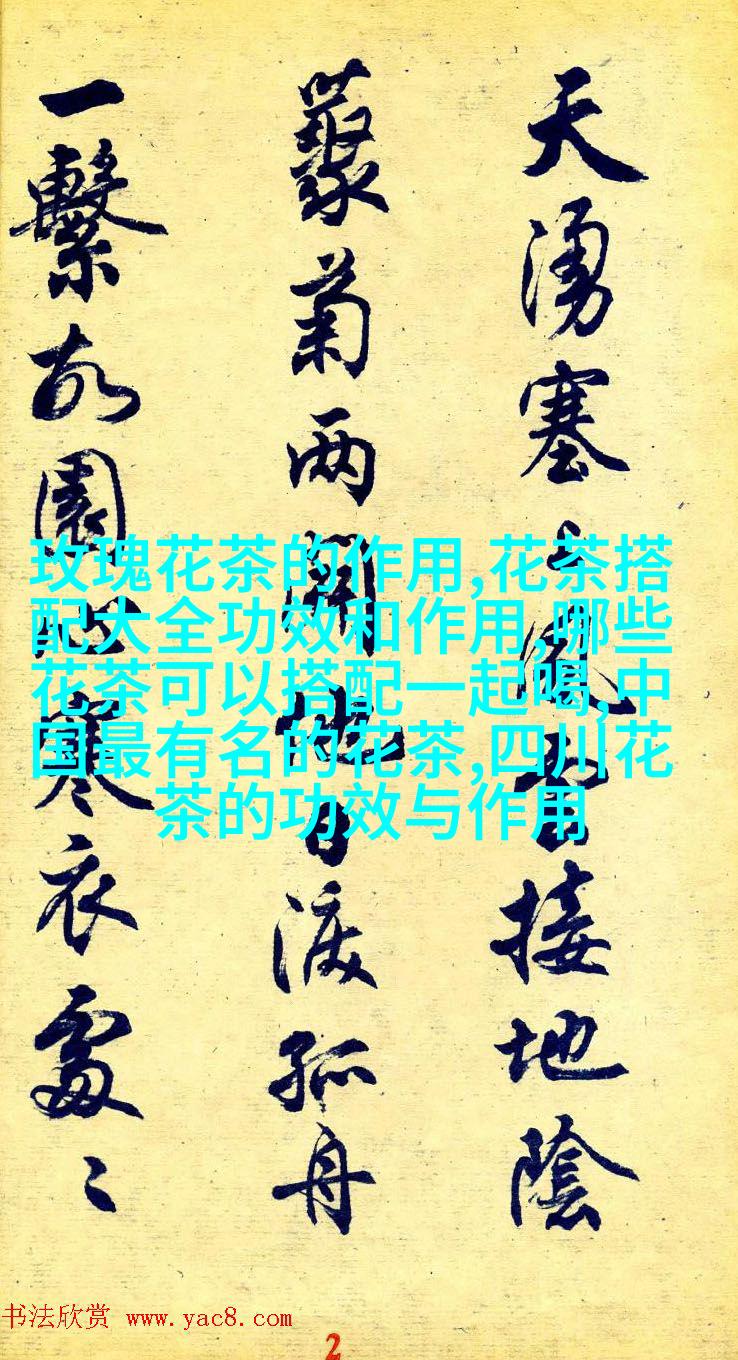 天湧塞上風雲接地陰
藂菊两開他日淚孤舟
一繫故園心寒衣處〻
玫瑰花茶的作用,花茶搭
配大全功效和作用,哪些
花茶可以搭配一起喝,中
国最有名的花茶,四川花
茶的功效与作用
书法欣赏 www.yac8.com
2